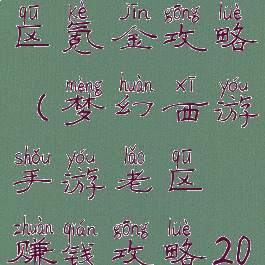 qū kè jīn gōng lüè
区氪金攻略
mèng huàn xī yóu
（梦幻西游
shǒu yóu lǎo qū
手游老区
zhuàn qián gōng lüè
赚钱攻略20